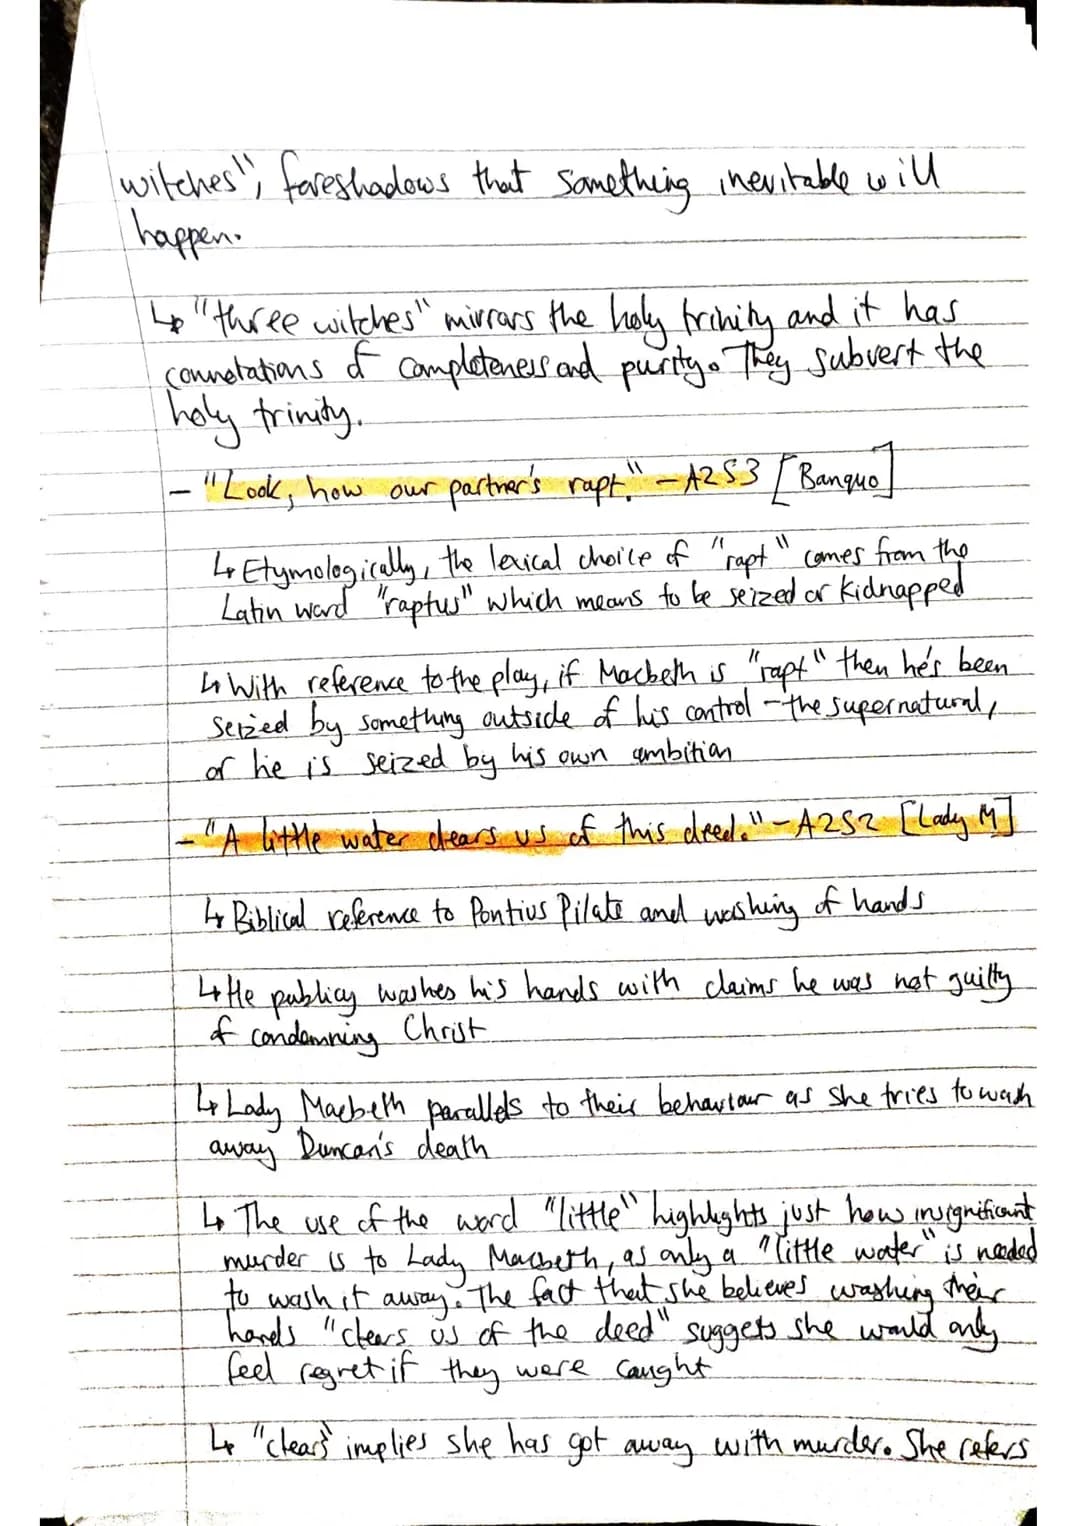 witches", foreshadows that something inevitable will
happen.
↳ "three witches" mirrors the holy trinity and it has
connotations of completeness and purity. They subvert the
holy trinity.
- "Look, how our partner's rapt." - A2S3 [Banquo]
↳ Etymologically, the lexical choice of "rapt" comes from the
Latin word "raptus" which means to be seized or kidnapped
↳ With reference to the play, if Macbeth is "rapt" then he's been
seized by something outside of his control - the supernatural,
or he is seized by his own ambition
- "A little water clears us of this deed." - A2S2 [Lady M]
↳ Biblical reference to Pontius Pilate and washing of hands
↳ He publicy washes his hands with claims he was not guilty
of condemning Christ
↳ Lady Macbeth parallels to their behaviour as she tries to wash
away Duncan's death
↳ The use of the word "little" highlights just how insignificant
murder is to Lady Macbeth, as only a "little water" is needed
to wash it away. The fact that she believes washing their
hands "clears us of the deed" suggests she would only
feel regret if they were caught
↳ "clears" implies she has got away with murder. She refers